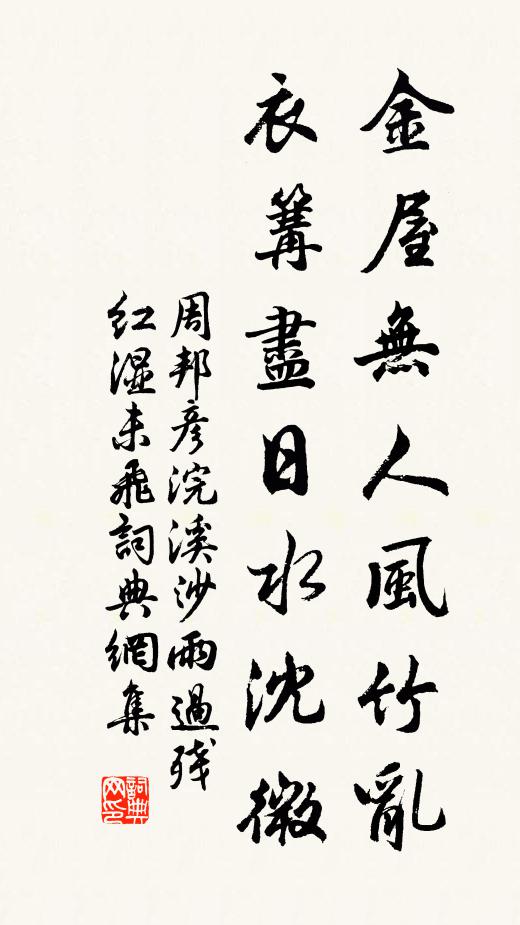 金屋無人風竹亂
衣篝盡日水沈微
周邦彦浣溪沙雨過残
红濕未飛詞典網集
詞典
网印